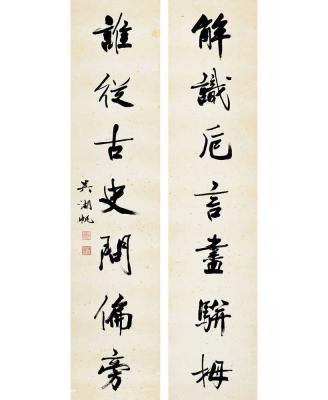 解識卮言盡駢拇
誰從古史問偏旁
吳湖帆